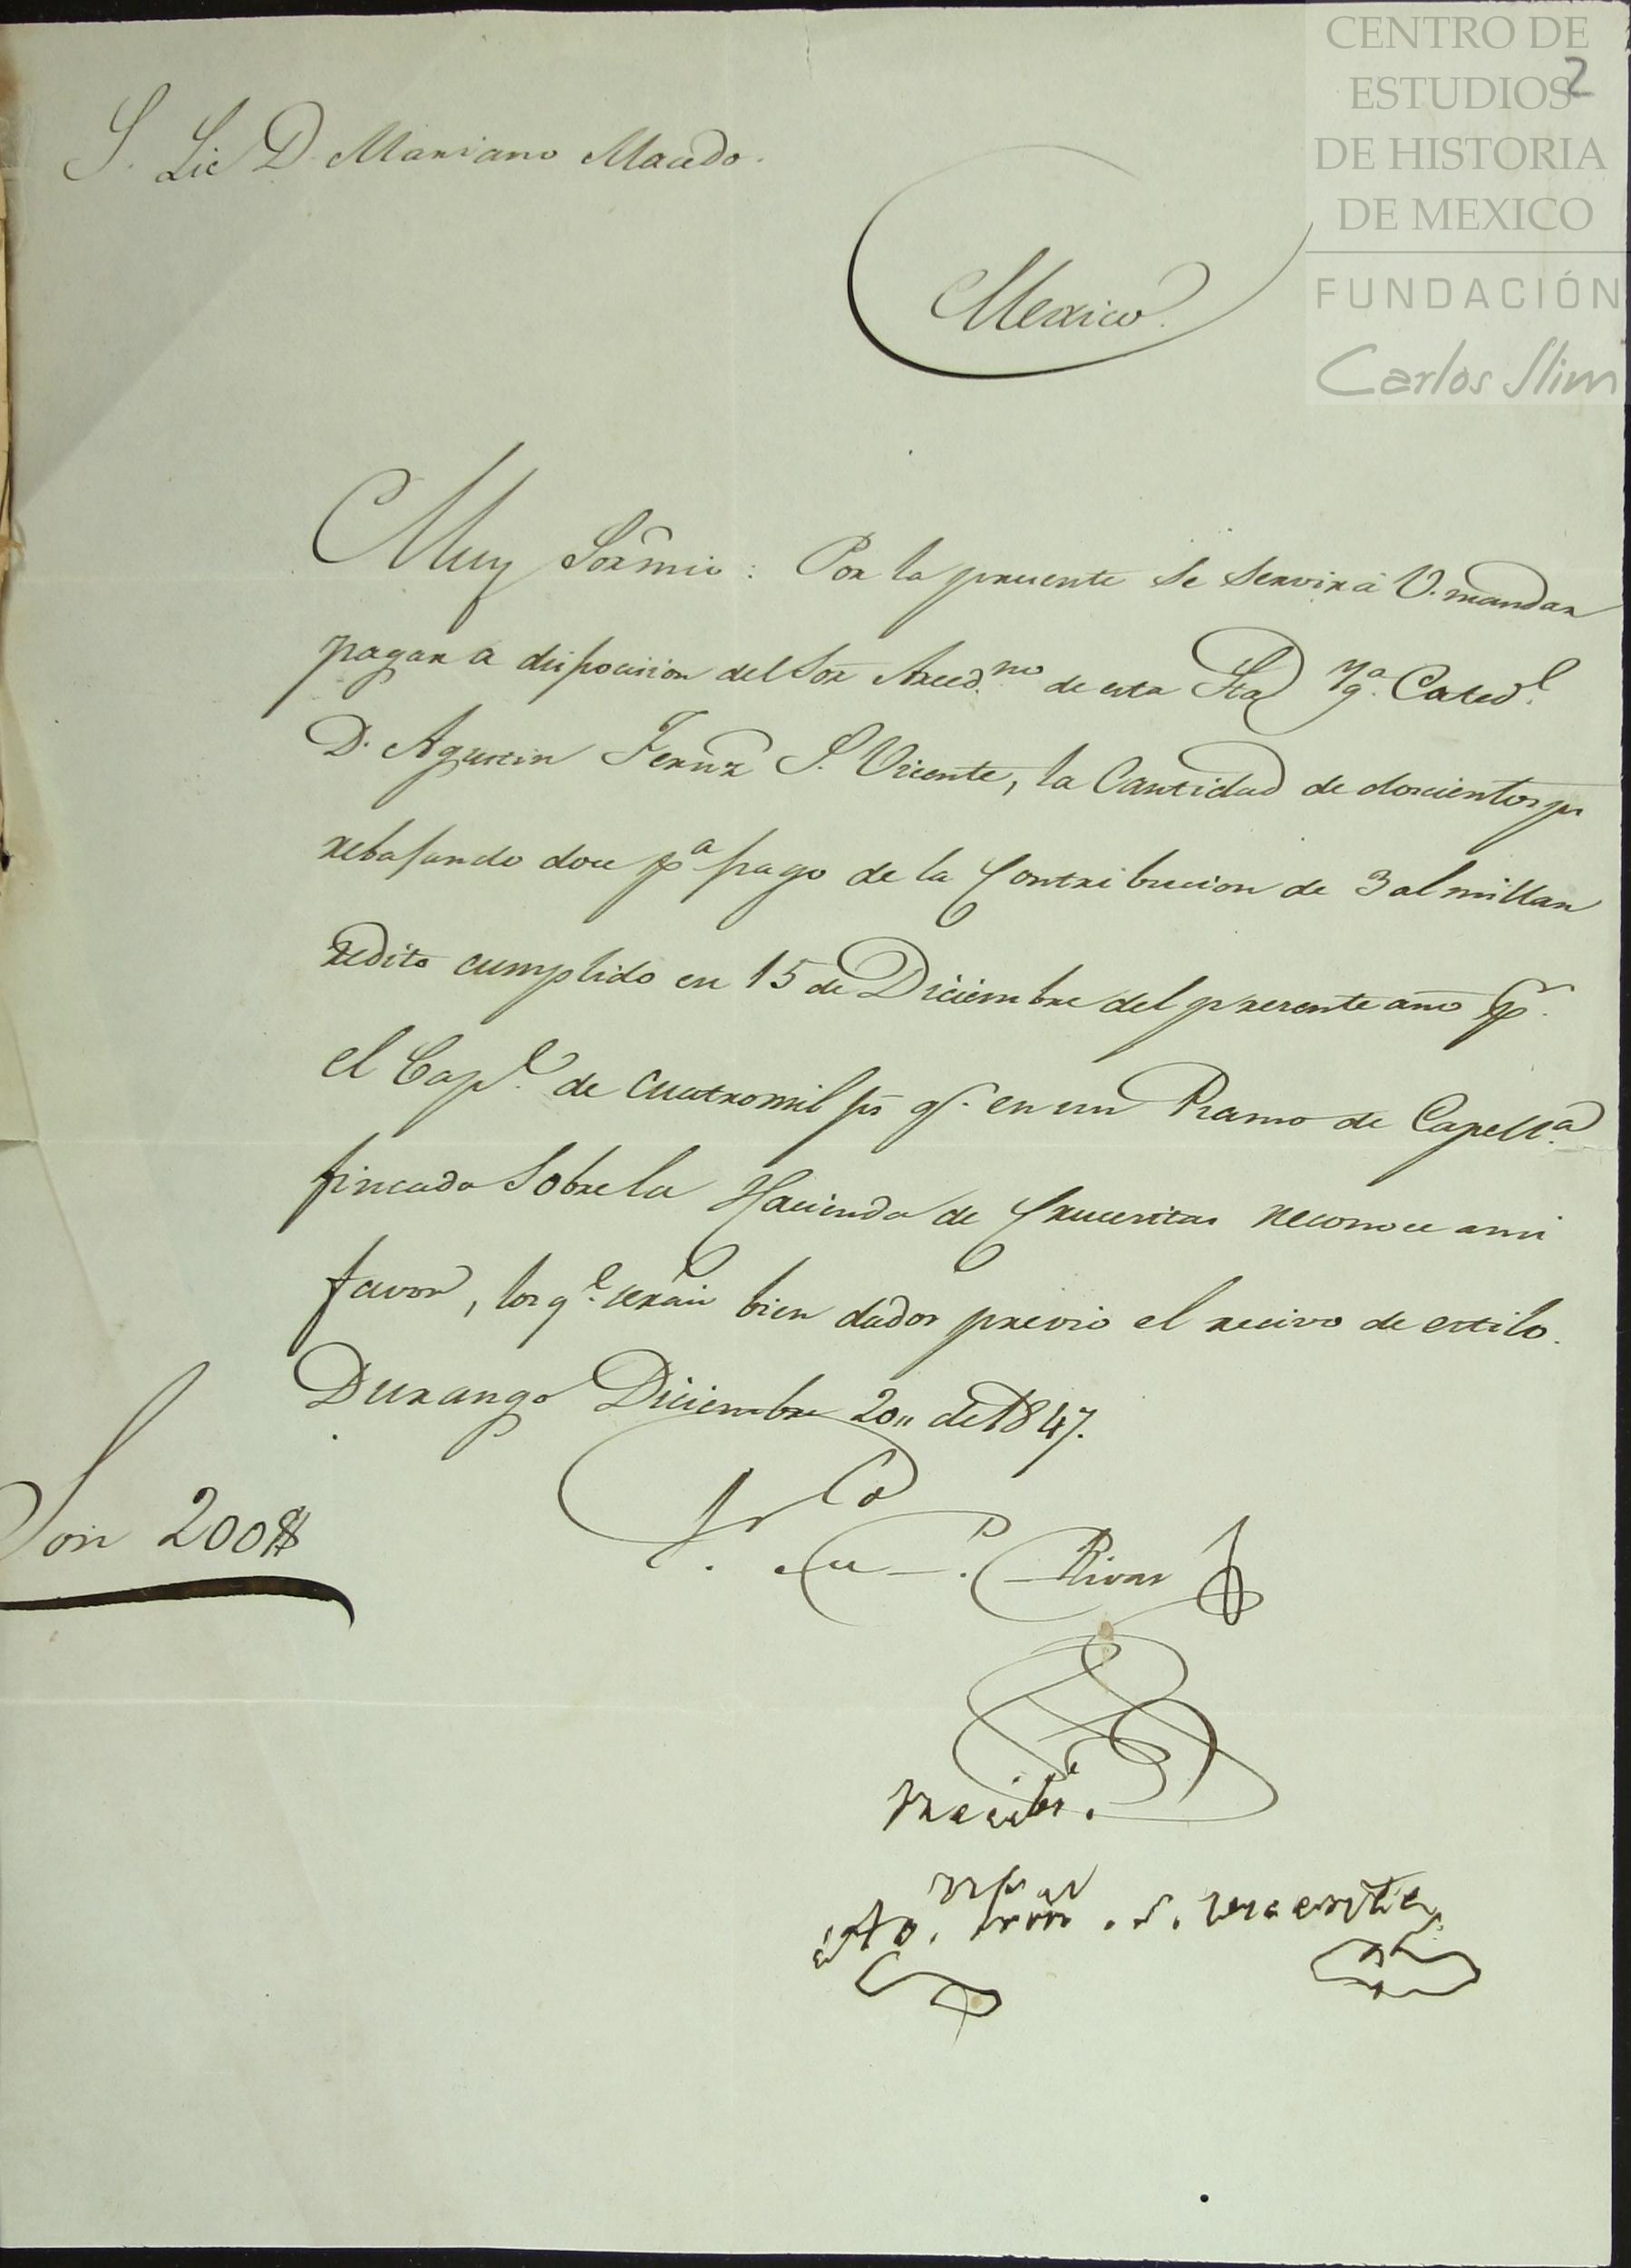 CENTRO DE
ESTUDIOS
DE HISTORIA
DE MEXICO
FUNDACIÓN
Carlos Slim
2
S. Lic D. Mariano Macedo.
Mexico.
Muy Sor mio: Por la presente se servirá V. mandar
pagar a disposicion del Sor Arced.no de esta Sta Yg.a Cated.l
D. Agustin Fernz S. Vicente, la Cantidad de doscientos ps
rebajando doce p.a pago de la Contribucion de 3 al millar
redito cumplido en 15 de Diciembre del presente año pr.
el Cap.l de cuatro mil ps q.e en un Ramo de Capell.a
fincado Sobre la Hacienda de Crucesitas reconoce a mi
favor, los q.e serán bien dados previo el recivo de estilo.
Durango Diciembre 20,, de 1847.
Son 200$
Rivas
Recibi.
S. Vicente